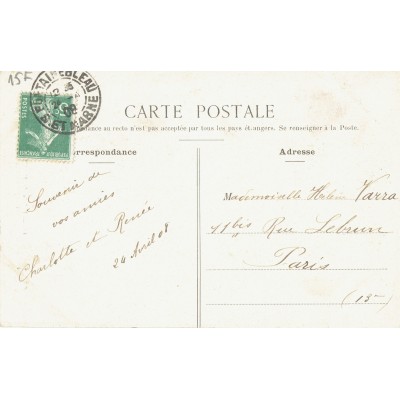 15F
FONTAINEBLEAU
Sᵀ ET MARNE
POSTES
CARTE POSTALE
ance au recto n'est pas acceptée par tous les pays étrangers. Se renseigner à la Poste.
respondance
Adresse
Souvenir de
vos amies
Charlotte et Renée
24 Avril 08
Mademoiselle Varra
11bis Rue Lebrun
Paris
(13me)